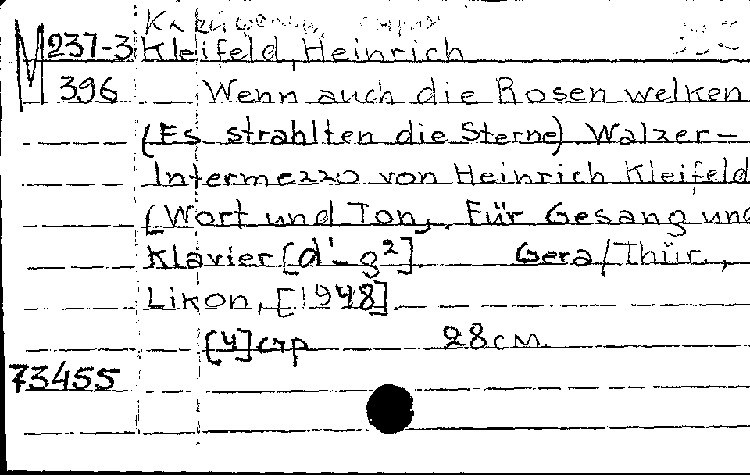 M 237-3 Kleifeld, Heinrich
396 Wenn auch die Rosen welken
(Es strahlten die Sterne) Walzer-
Intermezzo von Heinrich Kleifeld
(Wort und Ton). Für Gesang und
Klavier [d'-g²]. Gera/Thür.,
Likon, [1948].
[4] стр 28 см.
73455